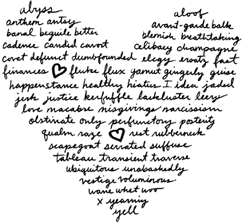 abyss aloof
anthem antsy avant-garde balk
banal beguile bitter blemish breathtaking
cadence candid cavort celibacy champagne
covet defunct dumbfounded elegy erratic fast
finances fluke flux gamut gingerly guise
happenstance healthy hiatus I idea jaded
jerk justice kerfuffle lackluster leery
love macabre misgivings narcissism
obstinate only perfunctory posterity
qualm raze rest rubberneck
scapegoat serrated suffuse
tableau transient traverse
ubiquitous unabashedly
vestige voluminous
wane whet woo
x yearning
yell